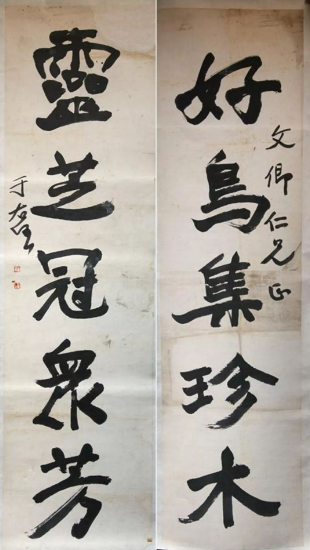 好鳥集珍木
文卿仁兄正
靈芝冠衆芳
于右任